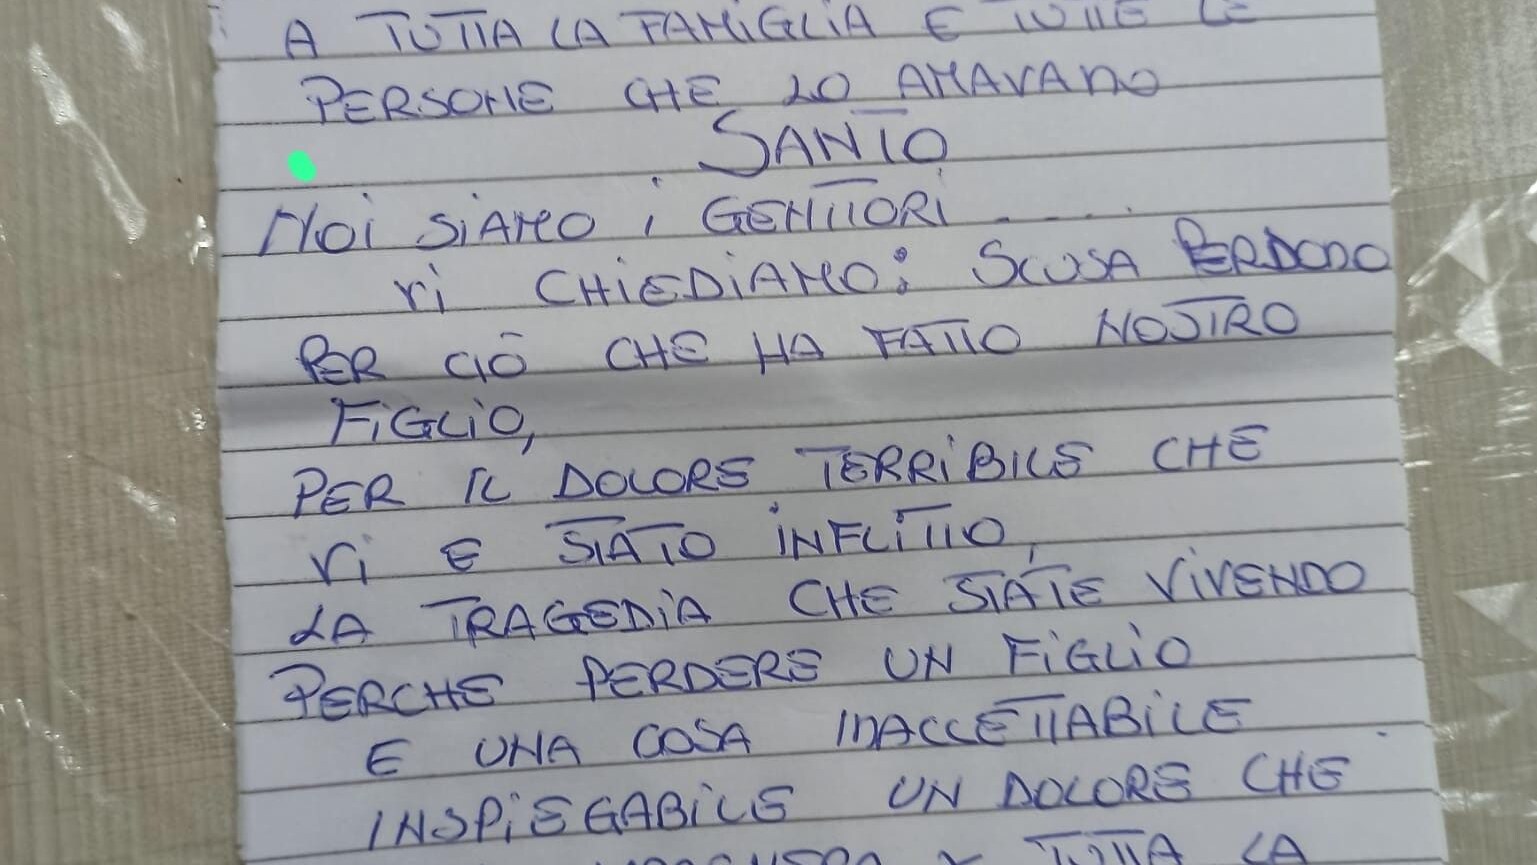 A TUTTA LA FAMIGLIA E TUTTE LE
PERSONE CHE LO AMAVANO
SANTO
NOI SIAMO I GENITORI .....
VI CHIEDIAMO: SCUSA PERDONO
PER CIÒ CHE HA FATTO NOSTRO
FIGLIO,
PER IL DOLORE TERRIBILE CHE
VI E STATO INFLITTO,
LA TRAGEDIA CHE STATE VIVENDO
PERCHE PERDERE UN FIGLIO
E UNA COSA INACCETTABILE
INSPIEGABILE UN DOLORE CHE
TUTTA LA